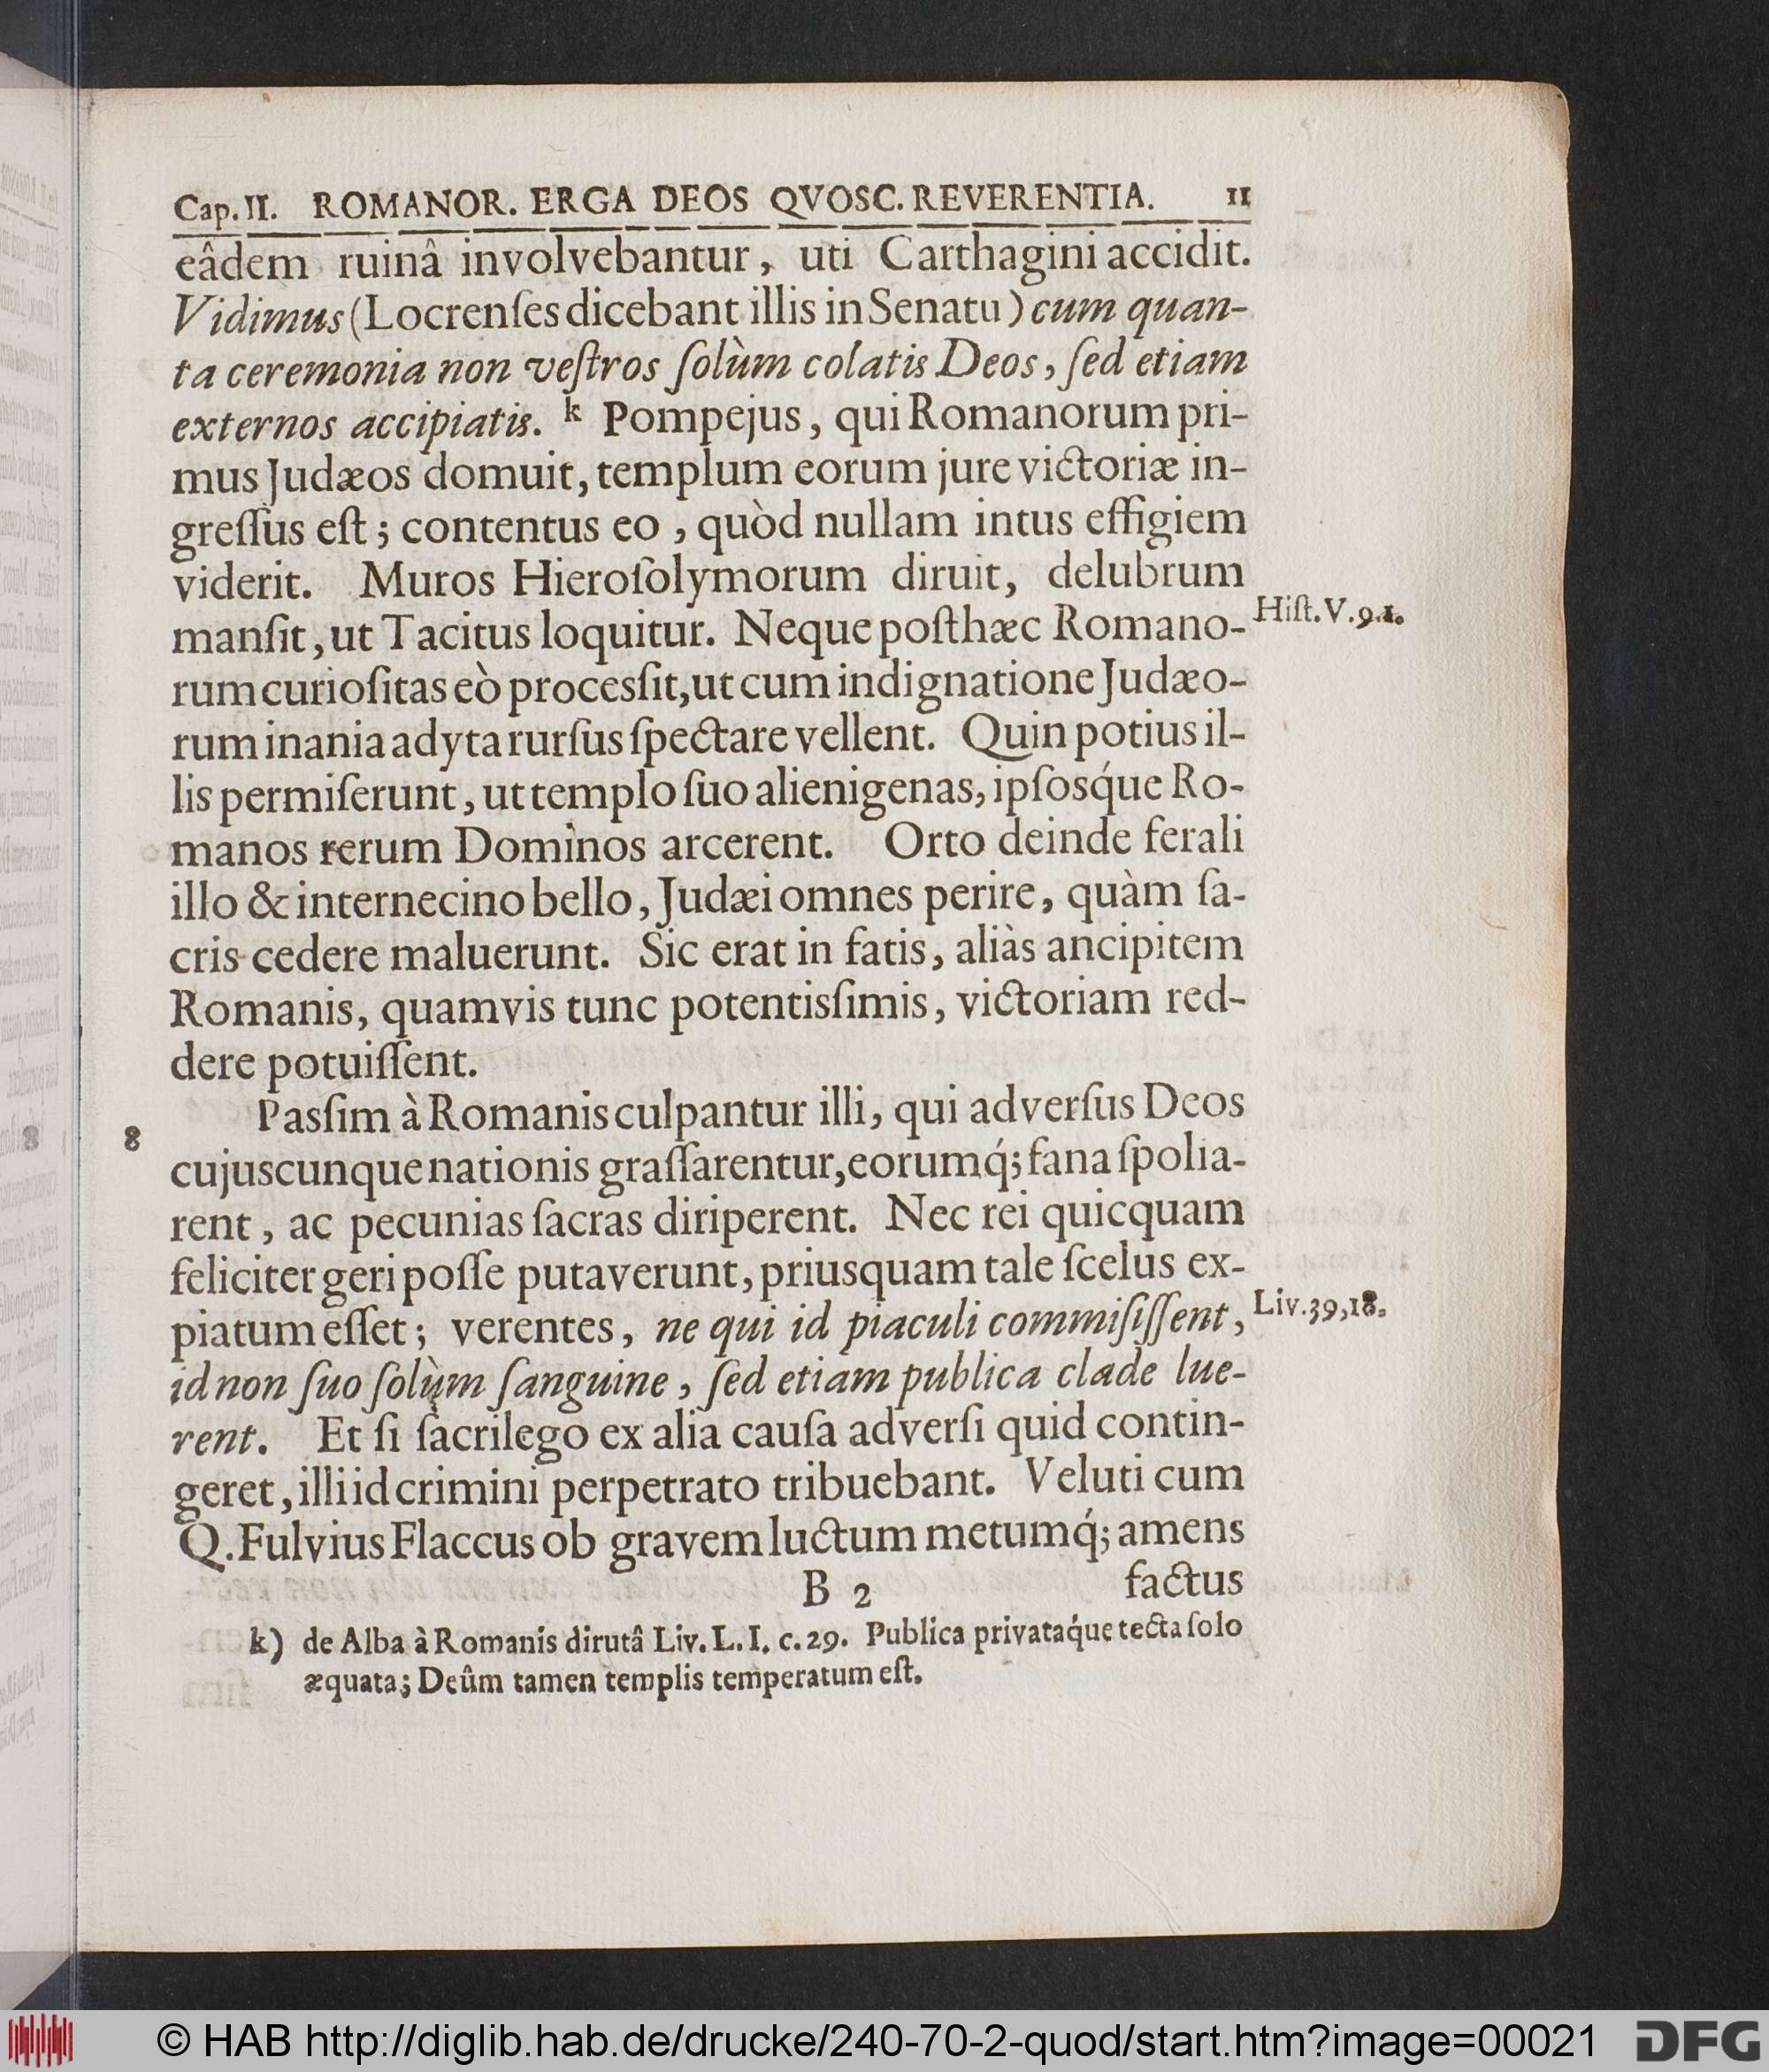 Cap. II. ROMANOR. ERGA DEOS QVOSC. REVERENTIA. 11
eâdem ruinâ involvebantur, uti Carthagini accidit.
Vidimus (Locrenſes dicebant illis in Senatu) cum quan-
ta ceremonia non veſtros ſolùm colatis Deos, ſed etiam
externos accipiatis. k Pompejus, qui Romanorum pri-
mus Judæos domuit, templum eorum jure victoriæ in-
greſſus eſt; contentus eo, quòd nullam intus effigiem
viderit. Muros Hieroſolymorum diruit, delubrum
manſit, ut Tacitus loquitur. Neque poſthæc Romano-
Hiſt. V. 9.1.
rum curioſitas eò procesſit, ut cum indignatione Judæo-
rum inania adyta rurſus ſpectare vellent. Quin potius il-
lis permiſerunt, ut templo ſuo alienigenas, ipſosq́ue Ro-
manos rerum Dominos arcerent. Orto deinde ferali
illo & internecino bello, Judæi omnes perire, quàm ſa-
cris cedere maluerunt. Sic erat in fatis, aliàs ancipitem
Romanis, quamvis tunc potentisſimis, victoriam red-
dere potuiſſent.
8 Pasſim à Romanis culpantur illi, qui adverſus Deos
cujuscunque nationis graſſarentur, eorumq́; fana ſpolia-
rent, ac pecunias ſacras diriperent. Nec rei quicquam
feliciter geri poſſe putaverunt, priusquam tale ſcelus ex-
piatum eſſet; verentes, ne qui id piaculi commiſiſſent,
Liv. 39, 18.
id non ſuo ſolùm ſanguine, ſed etiam publica clade lue-
rent. Et ſi ſacrilego ex alia cauſa adverſi quid contin-
geret, illi id crimini perpetrato tribuebant. Veluti cum
Q. Fulvius Flaccus ob gravem luctum metumq́; amens
B 2 factus
k) de Alba à Romanis dirutâ Liv. L. I. c. 29. Publica privataq́ue tecta ſolo
æquata; Deûm tamen templis temperatum eſt.
© HAB http://diglib.hab.de/drucke/240-70-2-quod/start.htm?image=00021
DFG